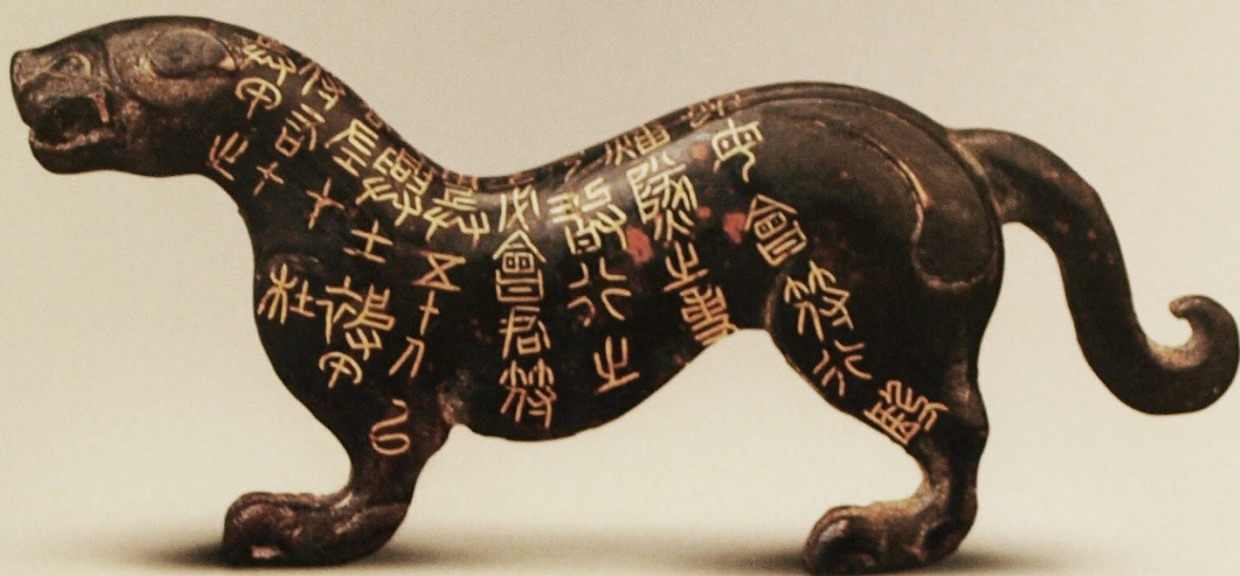 兵甲之符右才
君左才杜
凡興士被甲
用兵五十人以
上必會君符
乃敢行之
燔燧之事
雖毋會符行殹